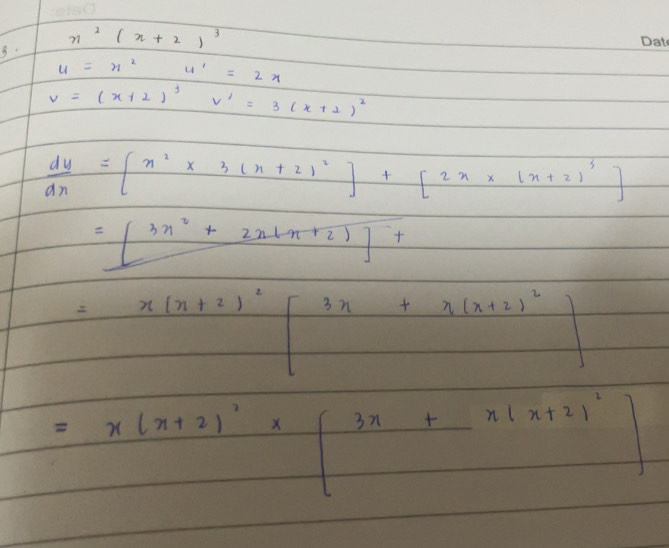 Date
3. x² (x + 2)³
u = x² u' = 2x
v = (x+2)³ v' = 3(x+2)²
dy/dx = [x² × 3(x+2)²] + [2x × (x+2)³]
= [3x² + 2x(x+2)] +
= x(x+2)² [3x + x(x+2)²]
= x(x+2)² × [3x + x(x+2)²]